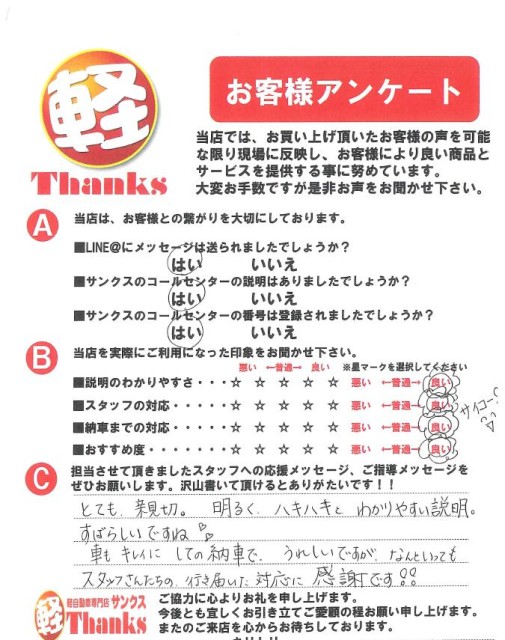 軽
Thanks
お客様アンケート
当店では、お買い上げ頂いたお客様の声を可能
な限り現場に反映し、お客様により良い商品と
サービスを提供する事に努めています。
大変お手数ですが是非お声をお聞かせ下さい。
A 当店は、お客様との繋がりを大切にしております。
■LINE@にメッセージは送られましたでしょうか？
はい いいえ
■サンクスのコールセンターの説明はありましたでしょうか？
はい いいえ
■サンクスのコールセンターの番号は登録されましたでしょうか？
はい いいえ
B 当店を実際にご利用になった印象をお聞かせ下さい。
悪い ←普通→ 良い ※星マークを選択してください
■説明のわかりやすさ・・・☆ ☆ ☆ ☆ ☆ 悪い ←普通→ 良い
■スタッフの対応・・・・・☆ ☆ ☆ ☆ ☆ 悪い ←普通→ 良い サイコー!
■納車までの対応・・・・・☆ ☆ ☆ ☆ ☆ 悪い ←普通→ 良い
■おすすめ度・・・・・・・☆ ☆ ☆ ☆ ☆ 悪い ←普通→ 良い
C 担当させて頂きましたスタッフへの応援メッセージ、ご指導メッセージを
ぜひお願いします。沢山書いて頂けるとありがたいです！！
とても、親切。 明るく、ハキハキと わかりやすい説明。
すばらしいですね
車も キレイに しての納車で、うれしいですが、なんといっても
スタッフさんたちの、行き届いた 対応に 感謝です!!
軽 軽自動車専門店 サンクス
Thanks
ご協力に心よりお礼を申し上げます。
今後とも宜しくお引き立てご愛顧の程お願い申し上げます。
またのご来店を心からお待ちしております。